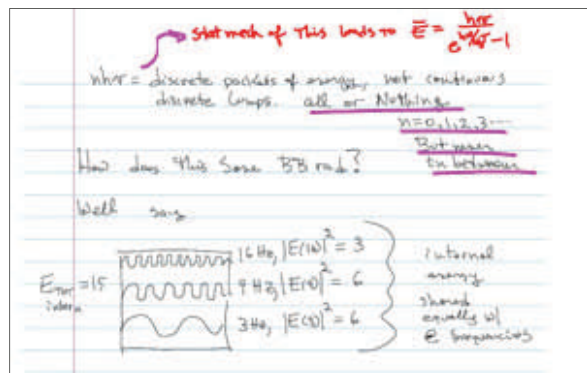 stat mech of this leads to E̅ = hν / e^(hν/kT) − 1
nhν = discrete packets of energy, not continuous
discrete lumps. all or Nothing
n=0,1,2,3...
But never
in between
How does this solve BB rad?
Well say
E = 15
16 Hz, |E(16)|² = 3
9 Hz, |E(9)|² = 6
3 Hz, |E(3)|² = 6
internal
energy
shared
equally w/
frequencies